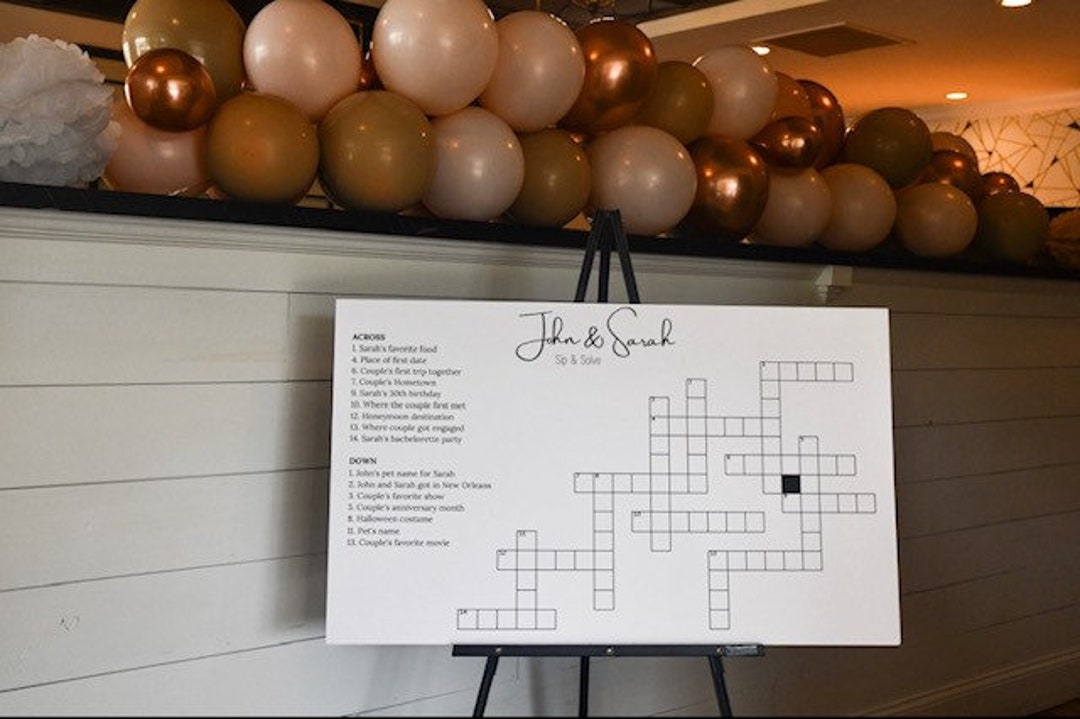 John & Sarah
Sip & Solve
ACROSS
1. Sarah's favorite food
4. Place of first date
6. Couple's first trip together
7. Couple's Hometown
9. Sarah's 30th birthday
10. Where the couple first met
12. Honeymoon destination
13. Where couple got engaged
14. Sarah's bachelorette party
DOWN
1. John's pet name for Sarah
2. John and Sarah got in New Orleans
3. Couple's favorite show
5. Couple's anniversary month
8. Halloween costume
11. Pet's name
13. Couple's favorite movie